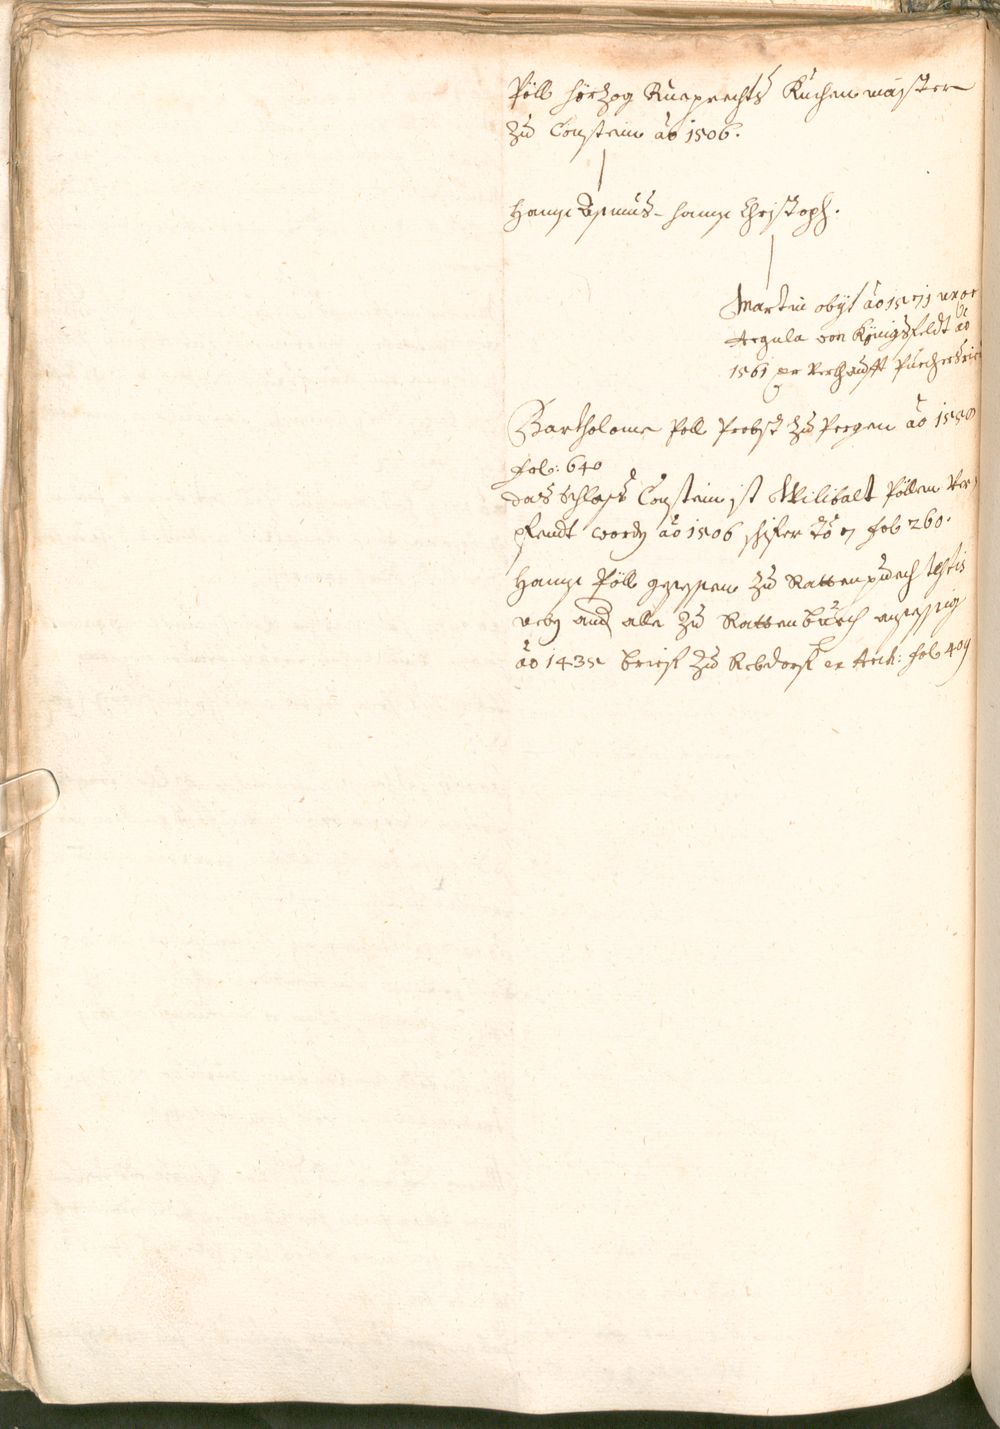 Pöll hörzog Rueprechts Kuchenmaister
zu Constein ao 1506.
Hanns Asmus - Hanns Christoph.
Martin obyt ao 1571 uxor
Argula von Königsfeldt ao
1561 er verkhaufft
Bartholome Pöll Probst zu Pergen ao 1550
fol: 640
das schloss Constein ist Wilibalt Pöllen ver
pfendt wordn ao 1506 shifer to 7 fol 260.
Hanns Pöll gesessen zu Rattenpuech testis
alle zu Rattenbuech
ao 1435 brief zu Rebdorf ex Arch: fol 409